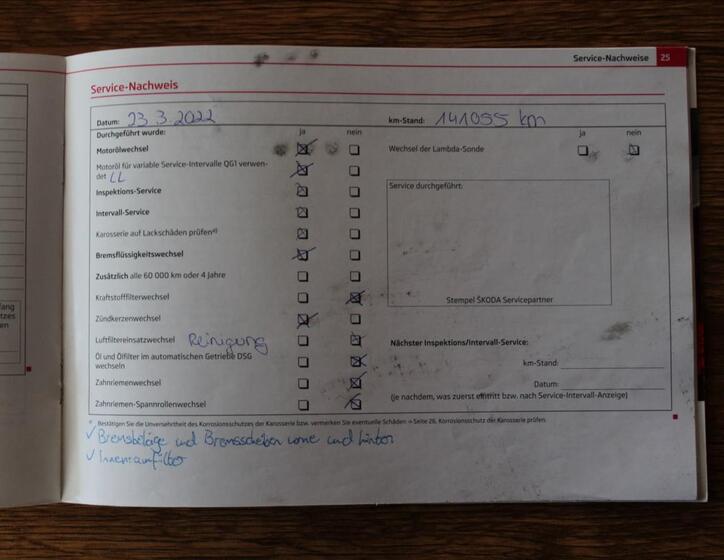 Service-Nachweise 25
Service-Nachweis
Datum: 23.3.2022 km-Stand: 141055 km
Durchgeführt wurde: ja nein ja nein
Motorölwechsel Wechsel der Lambda-Sonde
Motoröl für variable Service-Intervalle QG1 verwen-
det LL
Inspektions-Service
Intervall-Service
Karosserie auf Lackschäden prüfen
Bremsflüssigkeitswechsel
Zusätzlich alle 60 000 km oder 4 Jahre
Kraftstofffilterwechsel
Zündkerzenwechsel
Luftfiltereinsatzwechsel Reinigung
Öl und Ölfilter im automatischen Getriebe DSG
wechseln
Zahnriemenwechsel
Zahnriemen-Spannrollenwechsel
Service durchgeführt:
Stempel ŠKODA Servicepartner
Nächster Inspektions/Intervall-Service:
km-Stand:
Datum:
(je nachdem, was zuerst eintritt bzw. nach Service-Intervall-Anzeige)
Bestätigen Sie die Unversehrtheit des Korrosionsschutzes der Karosserie bzw. vermerken Sie eventuelle Schäden ⇒ Seite 26, Korrosionsschutz der Karosserie prüfen.
✓ Bremsbeläge und Bremsscheiben vorne und hinten
✓ Innenraumfilter
fang
tzes
en